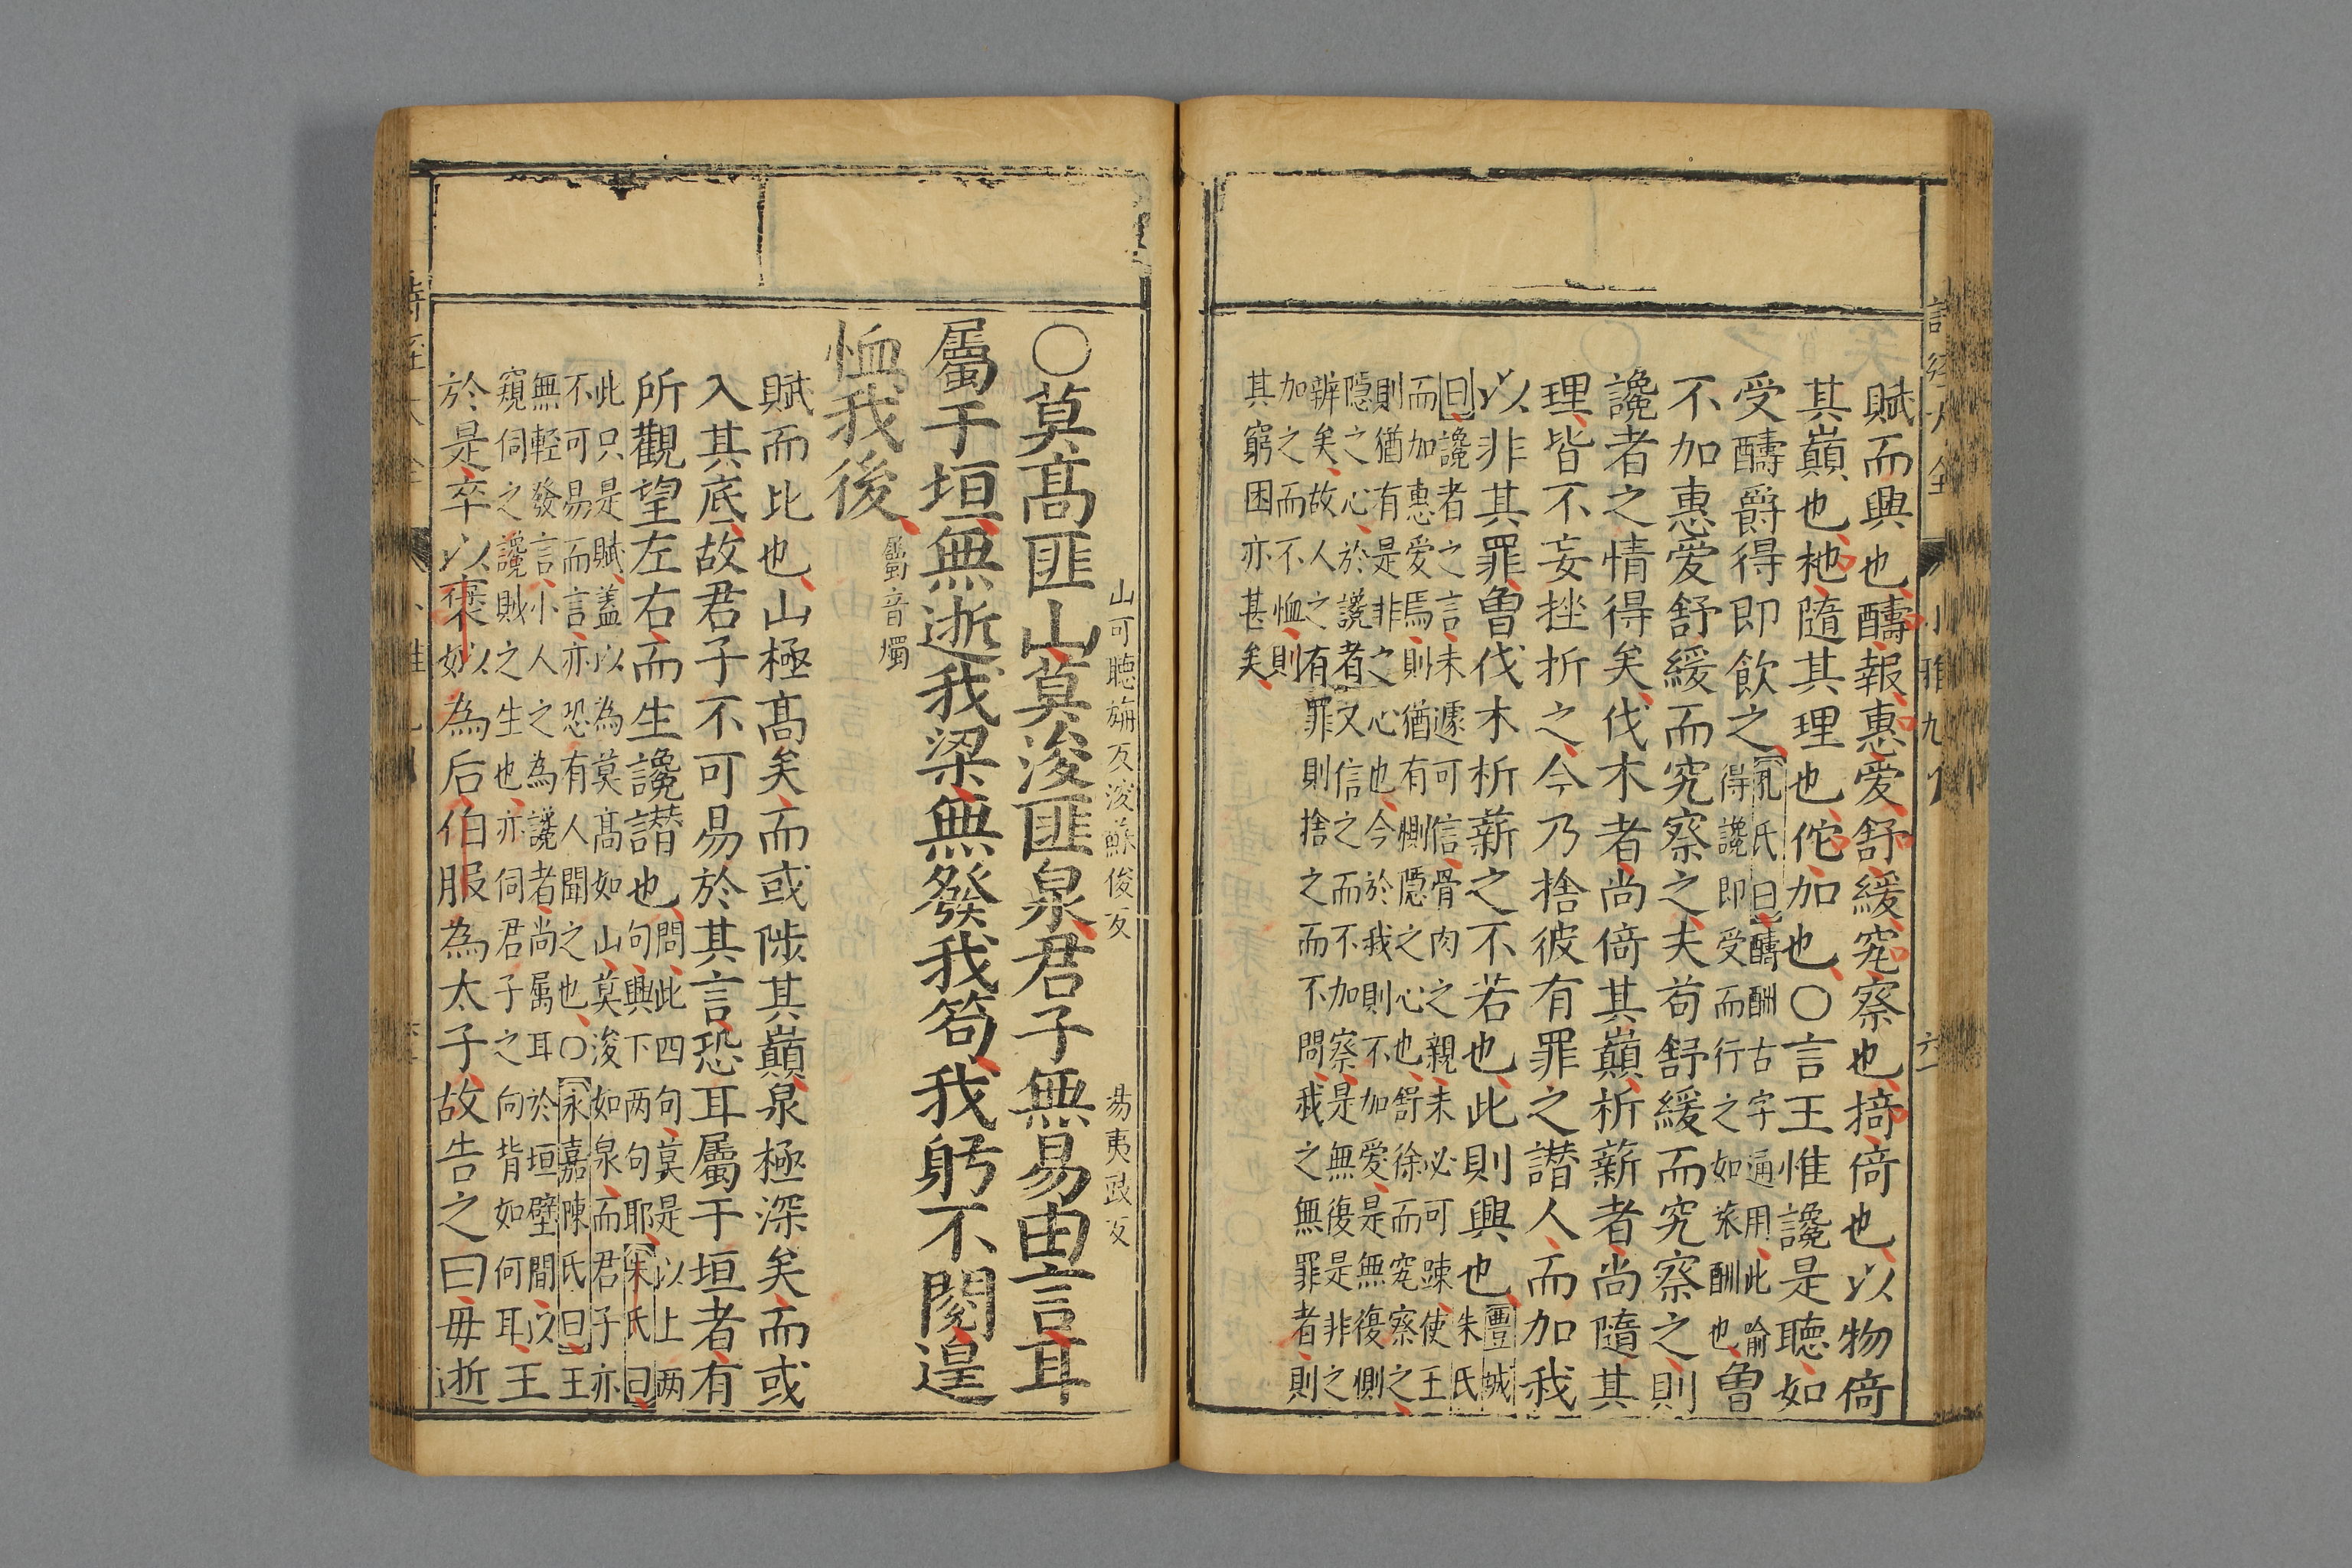 賦而興也醻報惠愛舒緩究察也掎倚也以物倚
其巔也杝隨其理也佗加也〇言王惟讒是聽如
受醻爵得即飲之
孔氏曰醻酬古字通用此喻
得讒即受而行之如旅酬也
曾
不加惠愛舒緩而究察之夫苟舒緩而究察之則
讒者之情得矣伐木者尚倚其巔析薪者尚隨其
理皆不妄挫折之今乃捨彼有罪之譖人而加我
以非其罪曾伐木析薪之不若也此則興也
豐城
朱氏
曰讒者之言未遽可信骨肉之親未必可踈使王
而加惠愛焉則猶有惻隱之心也舒徐而究察之
則猶有是非之心也今於我則不加愛是無復惻
隱之心於讒者又信之而不加察是無復是非之
辨矣故人之有罪則捨之而不問我之無罪者則
加之而不恤則
其窮困亦甚矣
山可聽旃反浚蘇俊反
易夷豉反
〇莫高匪山莫浚匪泉君子無易由言耳
屬于垣無逝我梁無發我笱我躬不閱遑
恤我後
屬音燭
賦而比也山極高矣而或陟其巔泉極深矣而或
入其底故君子不可易於其言恐耳屬于垣者有
所觀望左右而生讒譖也
問此四句莫是以上两
句興下两句耶朱氏曰
此只是賦蓋以為莫高如山莫浚如泉而君子亦
不可易而言亦恐有人聞之也〇永嘉陳氏曰王
無輕發言小人之為讒者尚屬耳於垣壁間以
窺伺之讒賊之生也亦伺君子之向背如何耳
王
於是卒以褒姒為后伯服為太子故告之曰毋逝